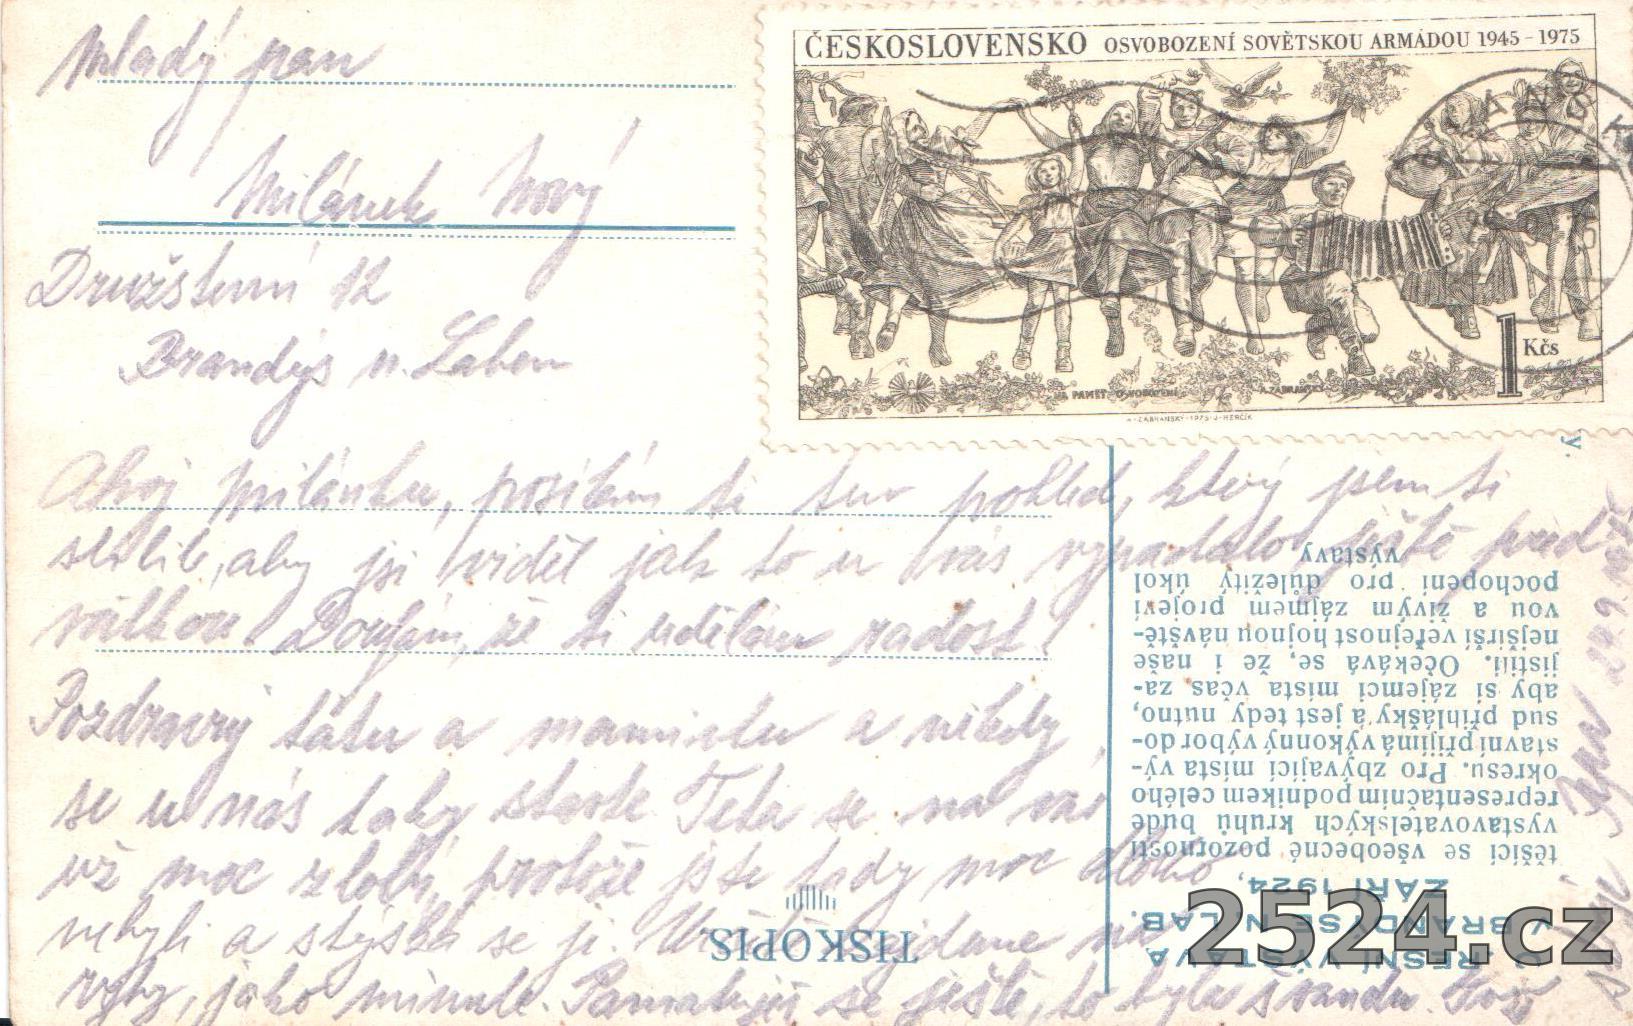 Mladý pan
Milánek Nový
Družstevní 12
Brandýs n. Labem
ČESKOSLOVENSKO OSVOBOZENÍ SOVĚTSKOU ARMÁDOU 1945-1975
1 Kčs
NA PAMĚŤ OSVOBOZENÍ A. ZÁBRANSKÝ
A. ZÁBRANSKÝ-1975-J. HERČÍK
Ahoj Milánku, posílám ti ten pohled, který jsem ti
slíbil, aby jsi viděl jak to u vás vypadalo ještě před
válkou. Doufám, že ti udělám radost.
Pozdravuj tátu a maminku a někdy
se u nás taky stavte. Teta se na vás
už moc zlobí, protože jste tady moc dlouho
nebyli a stýská se jí. Určitě na
ryby, jako minule. Pamatuješ se ještě, to byla švanda. Tvůj
strejc
OKRESNÍ VÝSTAVA
V BRANDÝSE N. LAB.
ZÁŘÍ 1924,
těšící se všeobecné pozornosti
vystavovatelských kruhů bude
representačním podnikem celého
okresu. Pro zbývající místa vý-
stavní přijímá výkonný výbor do-
sud přihlášky a jest tedy nutno,
aby si zájemci místa včas za-
jistili. Očekává se, že i naše
nejširší veřejnost hojnou návště-
vou a živým zájmem projeví
pochopení pro důležitý úkol
výstavy
TISKOPIS.
2524.cz